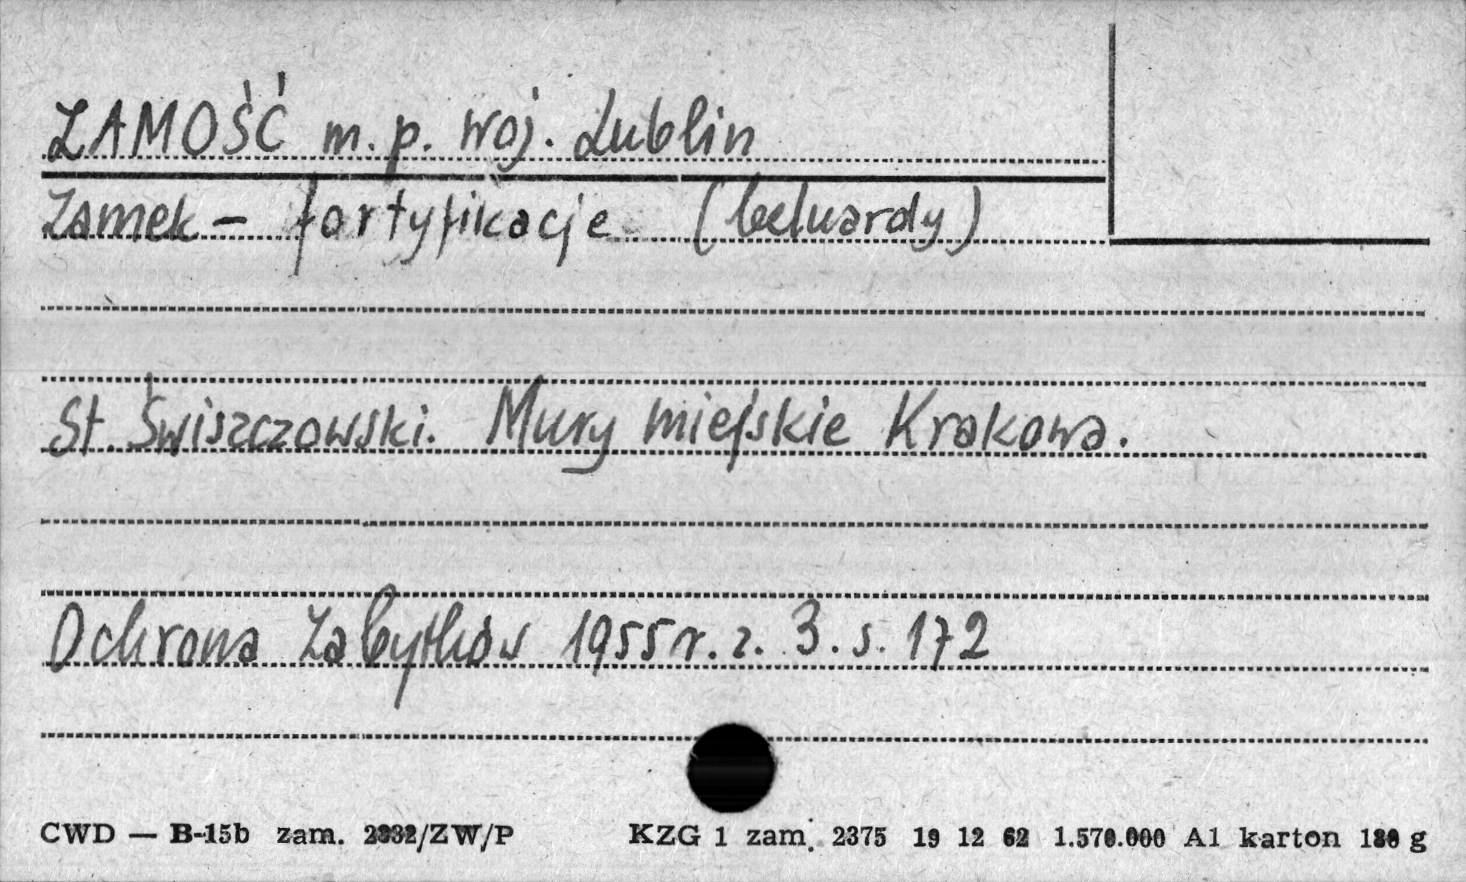 ZAMOŚĆ m.p. woj. Lublin
Zamek – fortyfikacje (beluardy)
St. Świszczowski. Mury miejskie Krakowa.
Ochrona Zabytków 1955 r. z. 3. s. 172
CWD — B-15b zam. 2332/ZW/P KZG 1 zam. 2375 19 12 62 1.570.000 A1 karton 180 g